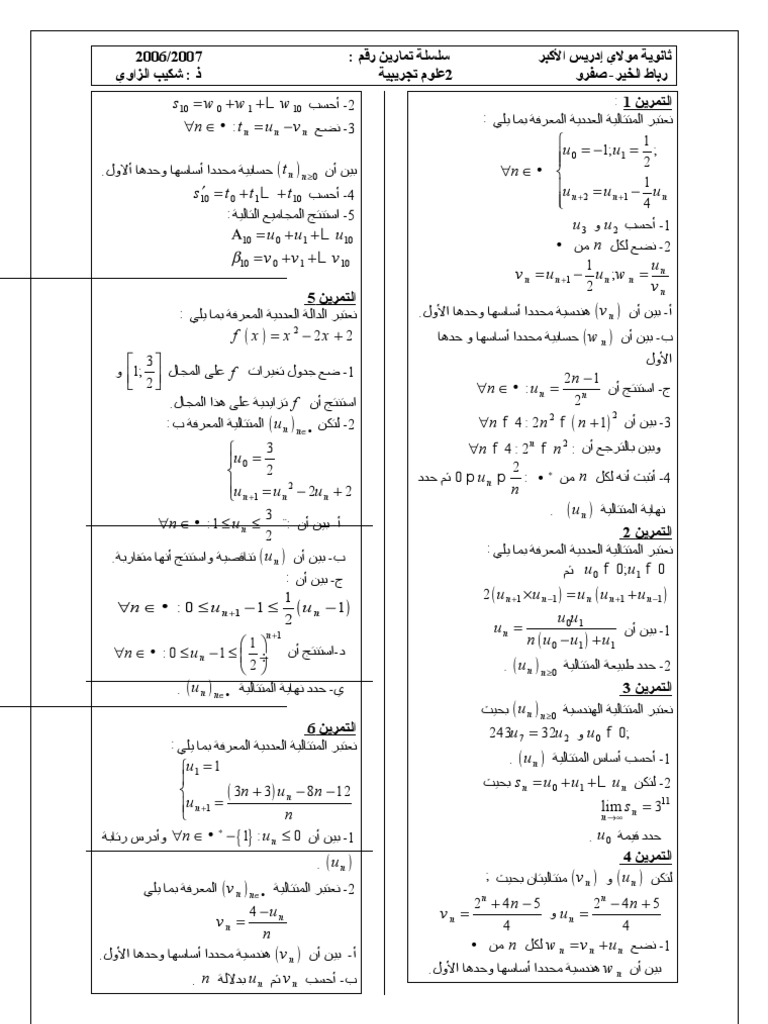 ثانوية مولاي إدريس الأكبر
رباط الخير - صفرو
سلسلة تمارين رقم :
2علوم تجريبية
2006/2007
ذ : شكيب الزاوي
التمرين 1 :
نعتبر المتتالية العددية المعرفة بما يلي :
∀n ∈ • { u₀ = −1; u₁ = 1/2 ;
uₙ₊₂ = uₙ₊₁ − 1/4 uₙ
1- أحسب u₂ و u₃
2- نضع لكل n من •
vₙ = uₙ₊₁ − 1/2 uₙ ; wₙ = uₙ/vₙ
أ- بين أن (vₙ) هندسية محددا أساسها وحدها الأول.
ب- بين أن (wₙ) حسابية محددا أساسها و حدها
الأول
ج- استنتج أن ∀n ∈ • : uₙ = (2n−1)/2ⁿ
3- بين أن ∀n f 4 : 2n² f (n+1)²
وبين بالترجع أن : ∀n f 4 : 2ⁿ f n²
4- أثبت أنه لكل n من •* : 0 p uₙ p 2/n ثم حدد
نهاية المتتالية (uₙ) .
التمرين 2
نعتبر المتتالية العددية المعرفة بما يلي :
u₀ f 0; u₁ f 0 ثم
2(uₙ₊₁ × uₙ₋₁) = uₙ(uₙ₊₁ + uₙ₋₁)
1- بين أن uₙ = u₀u₁ / (n(u₀ − u₁) + u₁)
2- حدد طبيعة المتتالية (uₙ)ₙ≥₀ .
التمرين 3
نعتبر المتتالية الهندسية (uₙ)ₙ≥₀ بحيث
u₀ f 0; و 243u₇ = 32u₂
1- أحسب أساس المتتالية (uₙ) .
2- لتكن sₙ = u₀ + u₁ + L uₙ بحيث
lim sₙ = 3¹¹
n→∞
حدد قيمة u₀ .
التمرين 4
لتكن (uₙ) و (vₙ) متتاليتان بحيث ;
uₙ = (2ⁿ − 4n + 5)/4 و vₙ = (2ⁿ + 4n − 5)/4
1- نضع wₙ = vₙ + uₙ لكل n من •
بين أن wₙ هندسية محددا أساسها وحدها الأول.
2- أحسب s₁₀ = w₀ + w₁ + L w₁₀
3- نضع ∀n ∈ • : tₙ = uₙ − vₙ
بين أن (tₙ)ₙ≥₀ حسابية محددا أساسها وحدها ألاول.
4- أحسب s′₁₀ = t₀ + t₁L + t₁₀
5- استنتج المجاميع التالية :
A₁₀ = u₀ + u₁ + L u₁₀
β₁₀ = v₀ + v₁ + L v₁₀
التمرين 5
نعتبر الدالة العددية المعرفة بما يلي :
f(x) = x² − 2x + 2
1- ضع جدول تغيرات f على المجال [1; 3/2] و
استنتج أن f تزايدية على هذا المجال.
2- لتكن (uₙ)ₙ∈• المتتالية المعرفة ب :
{ u₀ = 3/2
uₙ₊₁ = uₙ² − 2uₙ + 2
أ- بين أن : ∀n ∈ • : 1 ≤ uₙ ≤ 3/2
ب- بين أن (uₙ) تناقصية واستنتج أنها متقاربة.
ج- بين أن :
∀n ∈ • : 0 ≤ uₙ₊₁ − 1 ≤ 1/2 (uₙ − 1)
د-استنتج أن ∀n ∈ • : 0 ≤ uₙ − 1 ≤ (1/2)ⁿ⁺¹
ي- حدد نهاية المتتالية (uₙ)ₙ∈• .
التمرين 6
نعتبر المتتالية العددية المعرفة بما يلي :
{ u₁ = 1
uₙ₊₁ = ((3n+3)uₙ − 8n − 12)/n
1- بين أن ∀n ∈ •* − {1} : uₙ ≤ 0 وأدرس رتابة
(uₙ) .
2- نعتبر المتتالية (vₙ)ₙ∈• المعرفة بما يلي
vₙ = (4 − uₙ)/n
أ- بين أن (vₙ) هندسية محددا أساسها وحدها الأول.
ب- أحسب vₙ ثم uₙ بدلالة n .